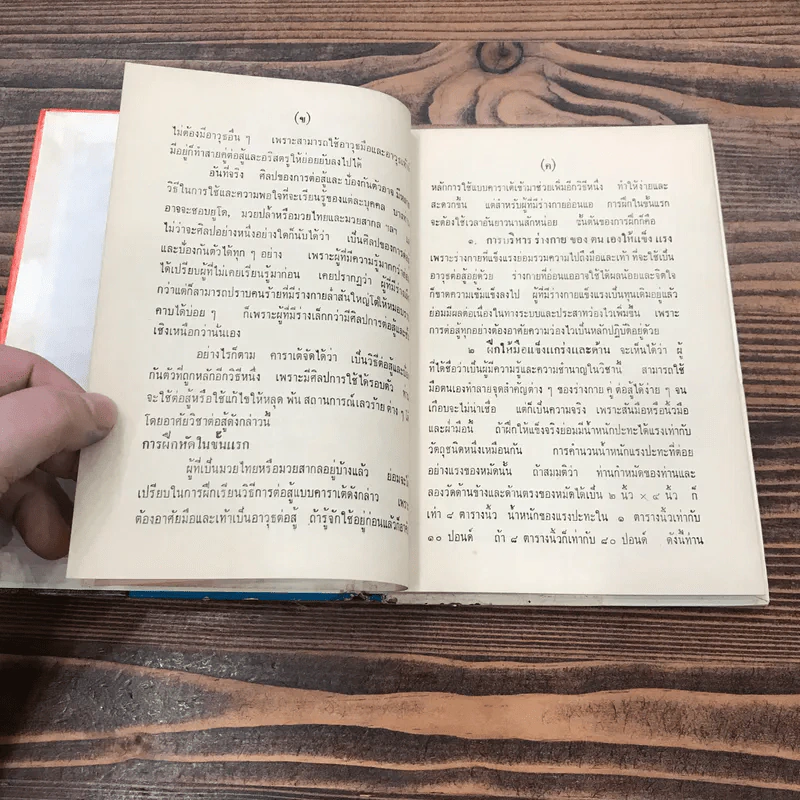 (ข)
ไม่ต้องมีอาวุธอื่น ๆ เพราะสามารถใช้อาวุธมือและอาวุธ
มีอยู่ก็ทำลายคู่ต่อสู้และอริสตรูให้ย่อยยับลงไปได้
อันที่จริง ศิลปของการต่อสู้และ ป้องกันตัวอาจ
วิธีในการใช้และความพอใจที่จะเรียนรู้ของแต่ละบุคคล
อาจจะชอบยูโด, มวยปล้ำหรือมวยไทยและมวยสากล ฯลฯ
ไม่ว่าจะศิลปอย่างหนึ่งอย่างใดก็นับได้ว่า เป็นศิลปของการ
และป้องกันตัวได้ทุก ๆ อย่าง เพราะผู้ที่มีความรู้มากกว่า
ได้เปรียบผู้ที่ไม่เคยเรียนรู้มาก่อน เคยปรากฏว่า ผู้ที่มีร่าง
กว่าแต่ก็สามารถปราบคนร้ายที่มีร่างกายล่ำสันใหญ่โตให้หมอบ
คาบได้บ่อย ๆ ก็เพราะผู้ที่มีร่างเล็กกว่ามีศิลปการต่อสู้และ
เชิงเหนือกว่านั่นเอง
อย่างไรก็ตาม คาราเต้จัดได้ว่า เป็นวิธีต่อสู้และ
กันตัวที่ถูกหลักอีกวิธีหนึ่ง เพราะมีศิลปการใช้ได้รอบตัว
จะใช้ต่อสู้หรือใช้แก้ไขให้หลุด พ้น สถานการณ์เลวร้าย ต่าง ๆ
โดยอาศัยวิชาต่อสู้ดังกล่าวนี้
การฝึกหัดในขั้นแรก
ผู้ที่เป็นมวยไทยหรือมวยสากลอยู่บ้างแล้ว ย่อมจะ
เปรียบในการฝึกเรียนวิธีการต่อสู้แบบคาราเต้ดังกล่าว
ต้องอาศัยมือและเท้าเป็นอาวุธต่อสู้ ถ้ารู้จักใช้อยู่ก่อนแล้วก็
(ค)
หลักการใช้แบบคาราเต้เข้ามาช่วยเพิ่มอีกวิธีหนึ่ง ทำให้ง่ายและ
สะดวกขึ้น แต่สำหรับผู้ที่มีร่างกายอ่อนแอ การฝึกในขั้นแรก
จะต้องใช้เวลาอันยาวนานสักหน่อย ขั้นต้นของการฝึกก็คือ
๑. การบริหาร ร่างกาย ของ ตน เองให้แข็ง แรง
เพราะร่างกายที่แข็งแรงย่อมรวมความไปถึงมือและเท้า ที่จะใช้เป็น
อาวุธต่อสู้อยู่ด้วย ร่างกายที่อ่อนแออาจใช้ได้ผลน้อยและจิตใจ
ก็ขาดความเข้มแข็งลงไป ผู้ที่มีร่างกายแข็งแรงเป็นทุนเดิมอยู่แล้ว
ย่อมมีผลต่อเนื่องในทางระบบและประสาทว่องไวเพิ่มขึ้น เพราะ
การต่อสู้ทุกอย่างต้องอาศัยความว่องไวเป็นหลักปฏิบัติอยู่ด้วย
๒ ฝึกให้มือแข็งแกร่งและด้าน จะเห็นได้ว่า ผู้
ที่ได้ชื่อว่าเป็นผู้มีความรู้และความชำนาญในวิชานี้ สามารถใช้
มือตนเองทำลายจุดสำคัญต่าง ๆ ของร่างกาย คู่ ต่อสู้ได้ง่าย ๆ จน
เกือบจะไม่น่าเชื่อ แต่ก็เป็นความจริง เพราะสันมือหรือนิ้วมือ
และฝ่ามือนี้ ถ้าฝึกให้แข็งจริงย่อมมีน้ำหนักปะทะได้แรงเท่ากับ
วัตถุชนิดหนึ่งเหมือนกัน การคำนวนน้ำหนักแรงปะทะที่ต่อย
อย่างแรงของหมัดนั้น ถ้าสมมติว่า ท่านกำหมัดของท่านและ
ลองวัดด้านข้างและด้านตรงของหมัดได้เป็น ๒ นิ้ว × ๔ นิ้ว ก็
เท่า ๘ ตารางนิ้ว น้ำหนักของแรงปะทะใน ๑ ตารางนิ้วเท่ากับ
๑๐ ปอนด์ ถ้า ๘ ตารางนิ้วก็เท่ากับ ๘๐ ปอนด์ ดังนี้ท่าน